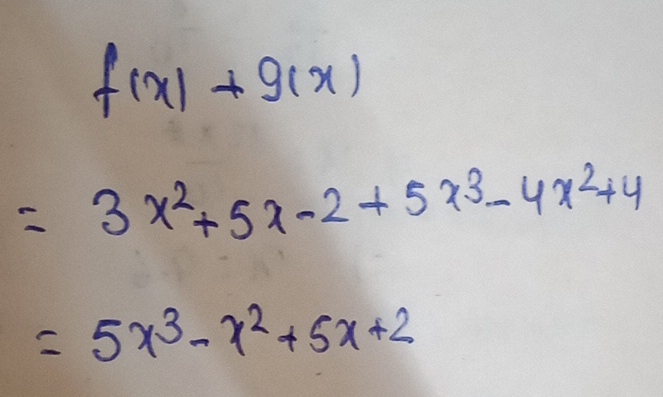 f(x) + g(x)
= 3x² + 5x - 2 + 5x³ - 4x² + 4
= 5x³ - x² + 5x + 2